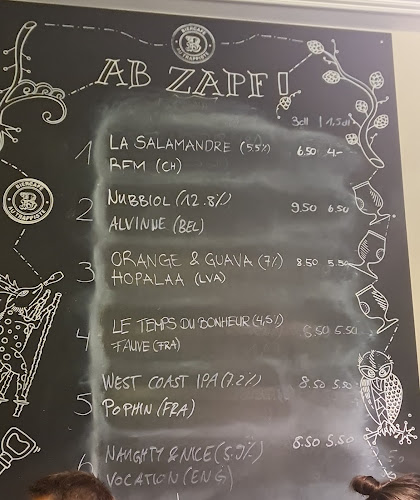 BIERCAFÉ
B
AU TRAPPISTE
AB ZAPF!
3dl | 1.5dl
1 LA SALAMANDRE (5.5%) 6.50 4.-
BFM (CH)
BIERCAFÉ
B
AU TRAPPISTE
2 NUBBIOL (12.8%) 9.50 6.50
ALVINNE (BEL)
3 ORANGE & GUAVA (7%) 8.50 5.50
HOPALAA (LVA)
4 LE TEMPS DU BONHEUR (4,5%) 8.50 5.50
FAUVE (FRA)
WEST COAST IPA (7.2%) 8.50 5.50
5 POPHIN (FRA)
NAUGHTY & NICE 8.50 5.50
6 VOCATION (ENG)